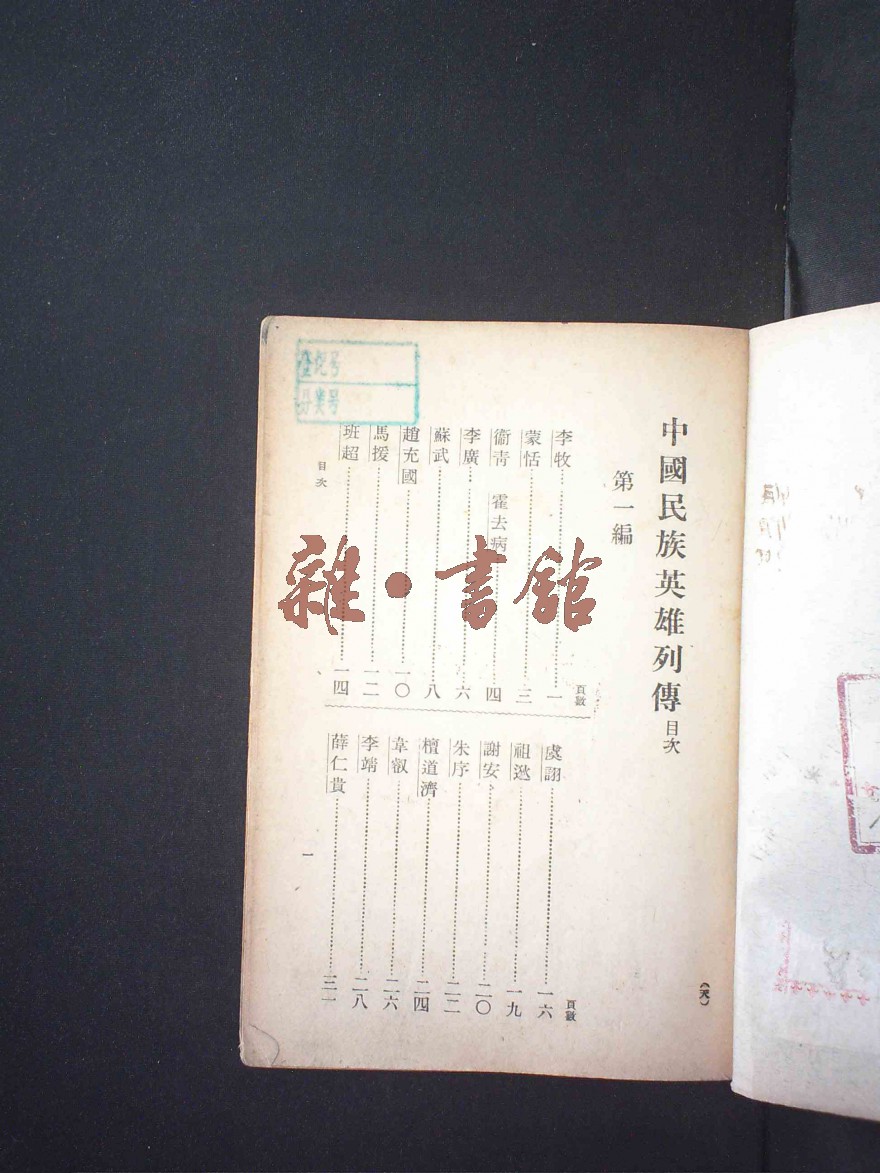 中國民族英雄列傳目次
第一編
頁數
李牧 一
蒙恬 三
衞青 霍去病 四
李廣 六
蘇武 八
趙充國 一〇
馬援 一二
班超 一四
頁數
虞詡 一六
祖逖 一九
謝安 二〇
朱序 二二
檀道濟 二四
韋叡 二六
李靖 二八
薛仁貴 三一
目次
一
(天)
登记号
雜·書館